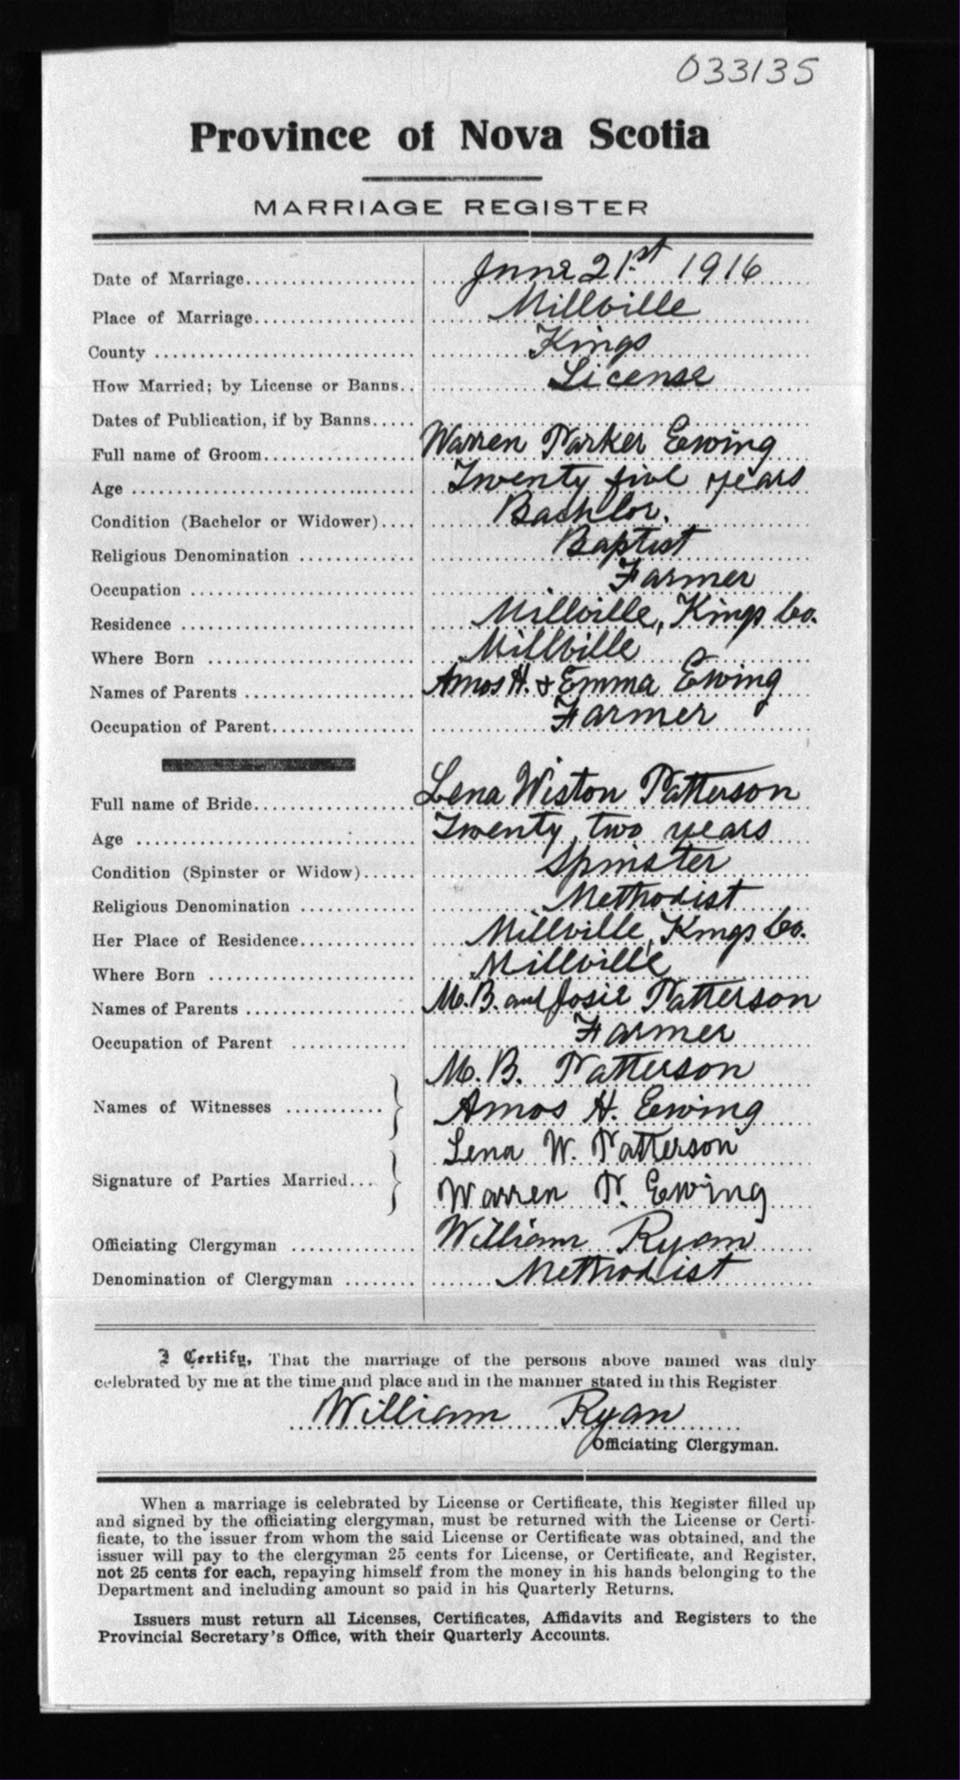 033135
Province of Nova Scotia
MARRIAGE REGISTER
Date of Marriage.................... June 21st 1916
Place of Marriage................... Millville
County .............................. Kings
How Married; by License or Banns.. License
Dates of Publication, if by Banns.....
Full name of Groom.................. Warren Parker Ewing
Age ................................. Twenty five years
Condition (Bachelor or Widower).... Bachlor.
Religious Denomination ............. Baptist
Occupation .......................... Farmer
Residence ........................... Millville, Kings Co.
Where Born ........................ Millville
Names of Parents .................... Amos H. & Emma Ewing
Occupation of Parent................. Farmer
Full name of Bride................... Lena Wiston Patterson
Age ................................. Twenty two years
Condition (Spinster or Widow)...... Spinster
Religious Denomination ............. Methodist
Her Place of Residence............. Millville, Kings Co.
Where Born ........................ Millville
Names of Parents .................... M. B. and Josie Patterson
Occupation of Parent .............. Farmer
M. B. Patterson
Names of Witnesses ........... Amos H. Ewing
Lena W. Patterson
Signature of Parties Married... Warren P. Ewing
Officiating Clergyman .............. William Ryan
Denomination of Clergyman ........ Methodist
I Certify, That the marriage of the persons above named was duly
celebrated by me at the time and place and in the manner stated in this Register
William Ryan
Officiating Clergyman.
When a marriage is celebrated by License or Certificate, this Register filled up
and signed by the officiating clergyman, must be returned with the License or Certi-
ficate, to the issuer from whom the said License or Certificate was obtained, and the
issuer will pay to the clergyman 25 cents for License, or Certificate, and Register,
not 25 cents for each, repaying himself from the money in his hands belonging to the
Department and including amount so paid in his Quarterly Returns.
Issuers must return all Licenses, Certificates, Affidavits and Registers to the
Provincial Secretary's Office, with their Quarterly Accounts.